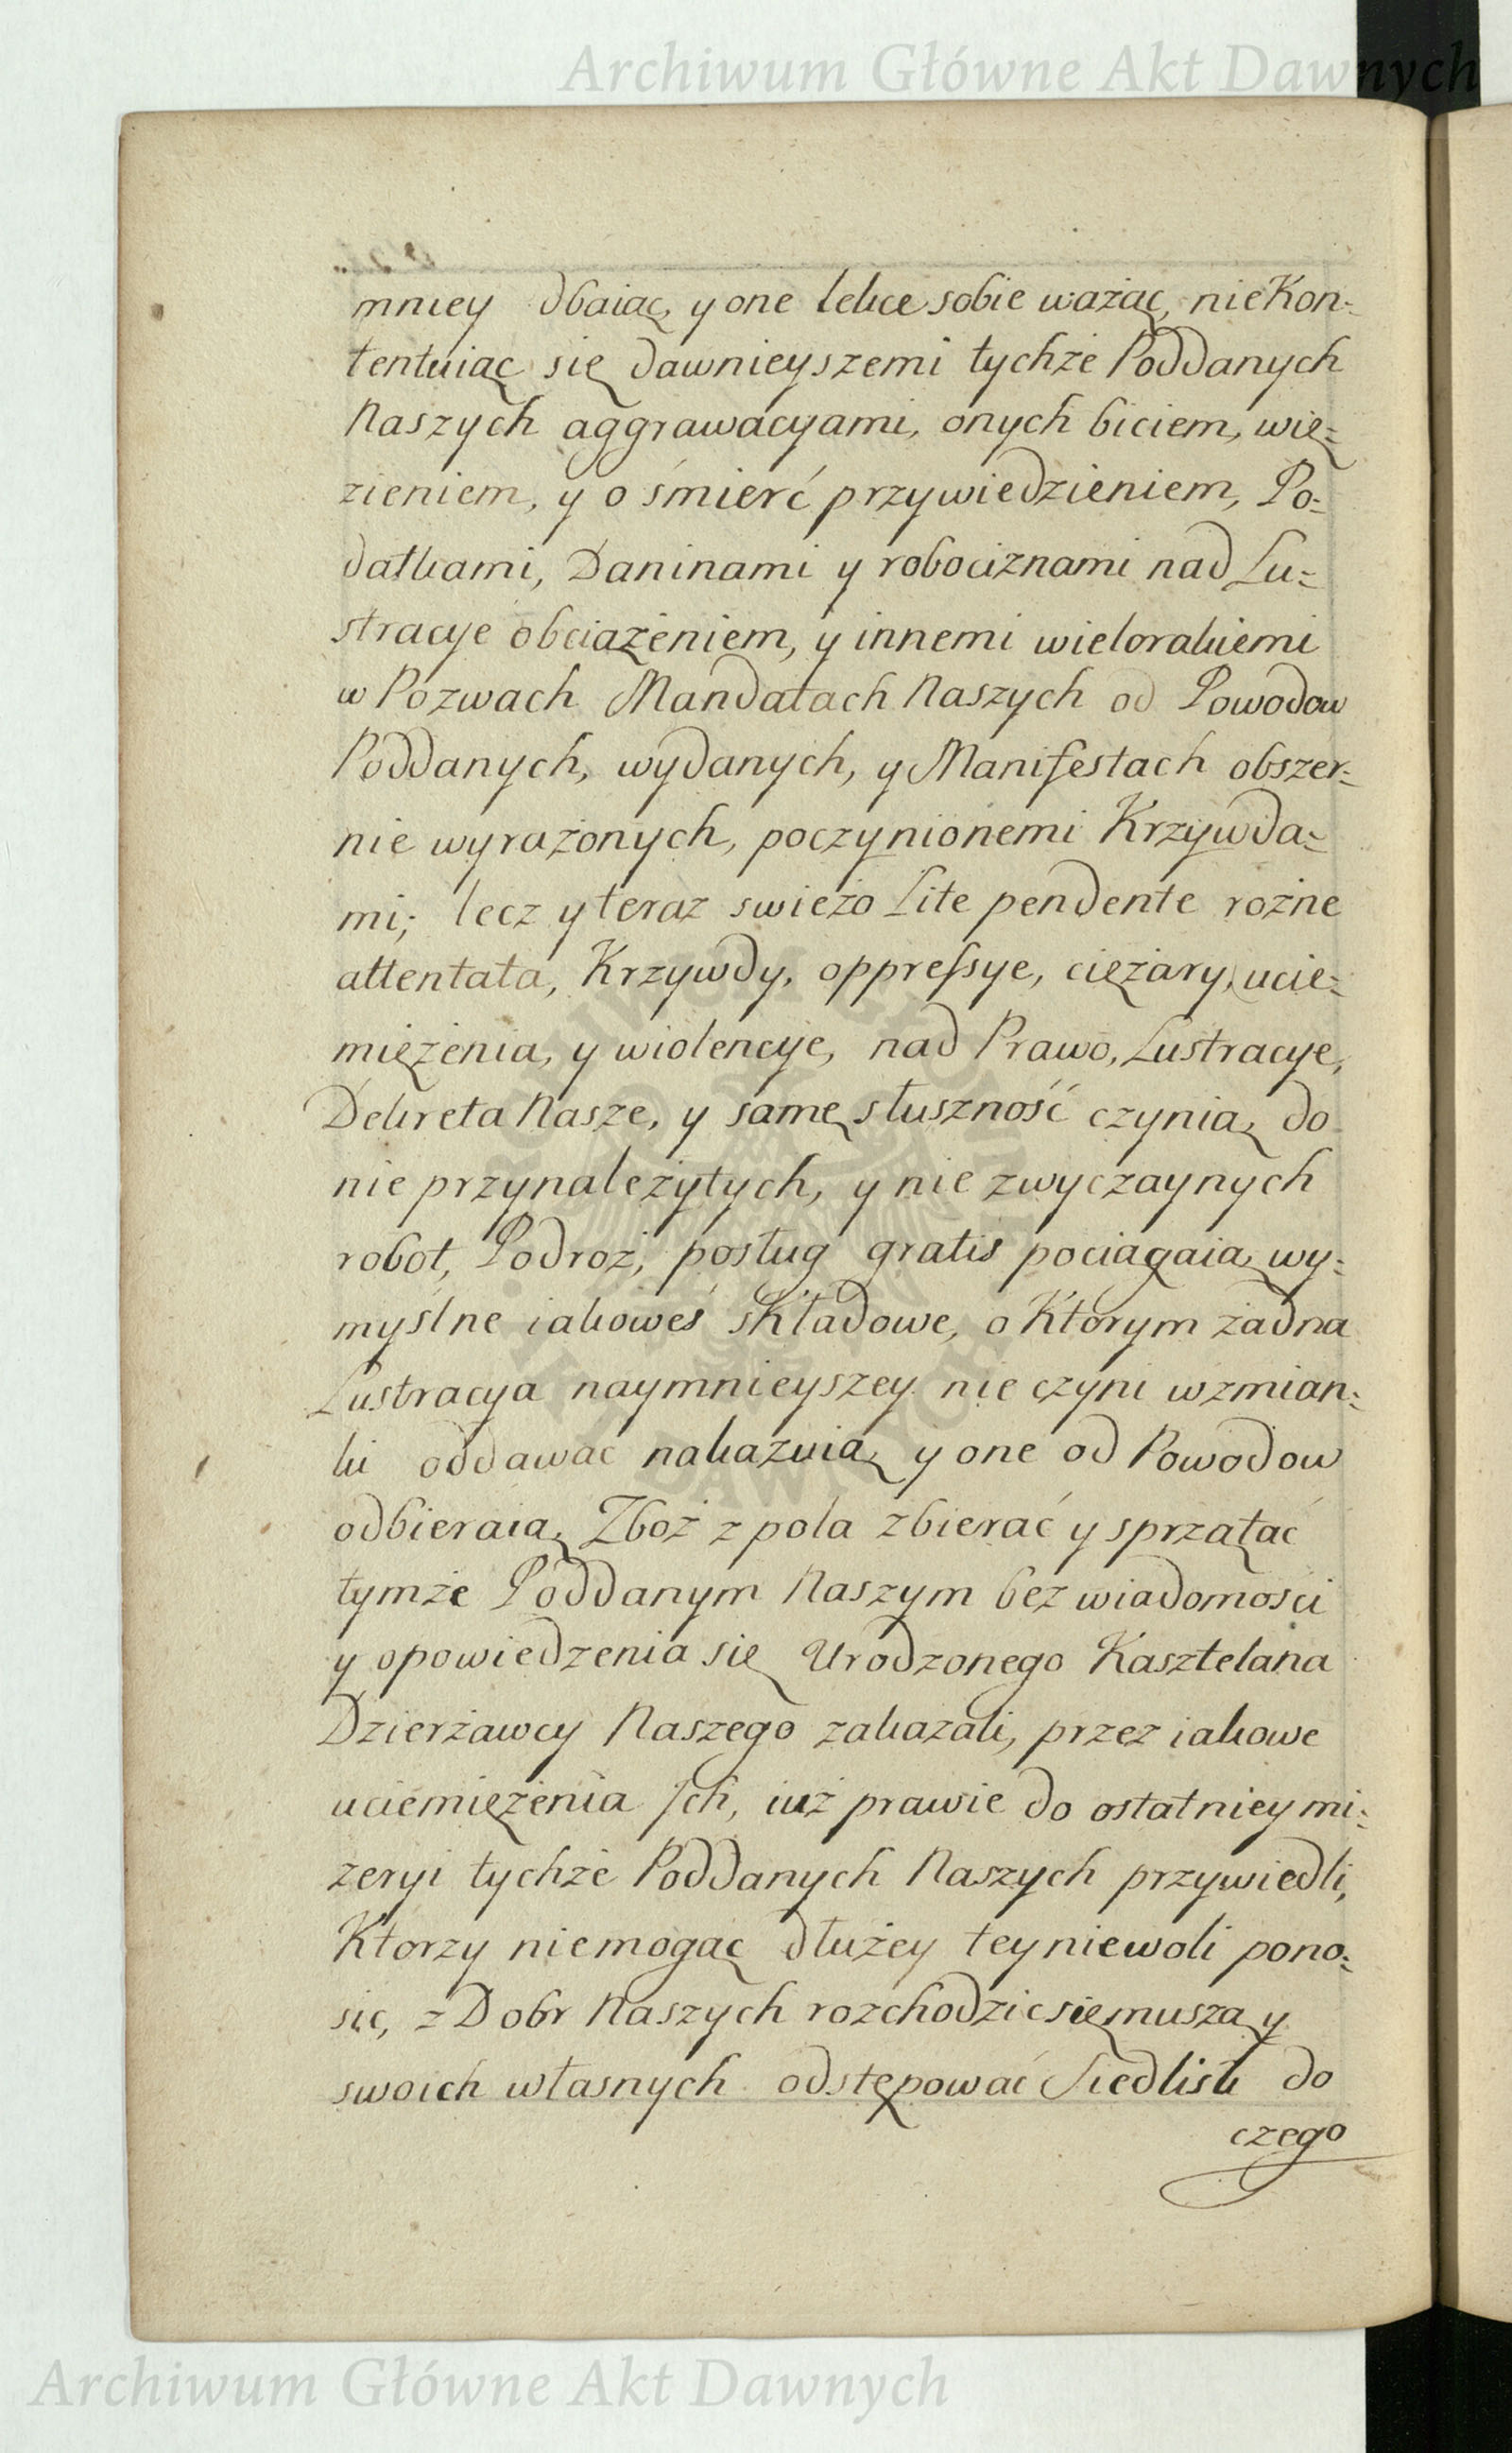 Archiwum Główne Akt Dawnych
mniey dbaiąc, y one lekce sobie ważąc, nie Kon-
tentuiąc się dawnieyszemi tychże Poddanych
Naszych aggrawacyami, onych biciem, wię-
zieniem, y o śmierć przywiedzieniem, Po-
datkami, Daninami y robociznami nad Lu-
stracye obciążeniem, y innemi wielorakiemi
w Pozwach Mandatach Naszych od Powodow
Poddanych, wydanych, y Manifestach obszer-
nie wyrażonych, poczynionemi Krzywda-
mi; lecz y teraz swieżo Lite pendente rożne
attentata, Krzywdy, oppressye, ciężary, ucie-
miężenia, y wiolencye, nad Prawo, Lustracye,
Dekreta Nasze, y samę słuszność czynią, do
nie przynależytych, y nie zwyczaynych
robot, Podroż, posług gratis pociągaią, wy-
myślne iakoweś składowe, o Ktorym żadna
Lustracya naymnieyszey nie czyni wzmian-
ki oddawać nakazuią, y one od Powodow
odbieraią, Zboż z pola zbierać y sprzątać
tymże Poddanym Naszym bez wiadomości
y opowiedzenia się Urodzonego Kasztelana
Dzierżawcy Naszego zakazali, przez iakowe
uciemiężenia Ich, iuż prawie do ostatniey mi-
zeryi tychże Poddanych Naszych przywiedli,
Ktorzy niemogąc dłużey tey niewoli pono-
sic, z Dobr Naszych rozchodzic się muszą, y
swoich własnych odstępować Siedlisk do
czego
Archiwum Główne Akt Dawnych